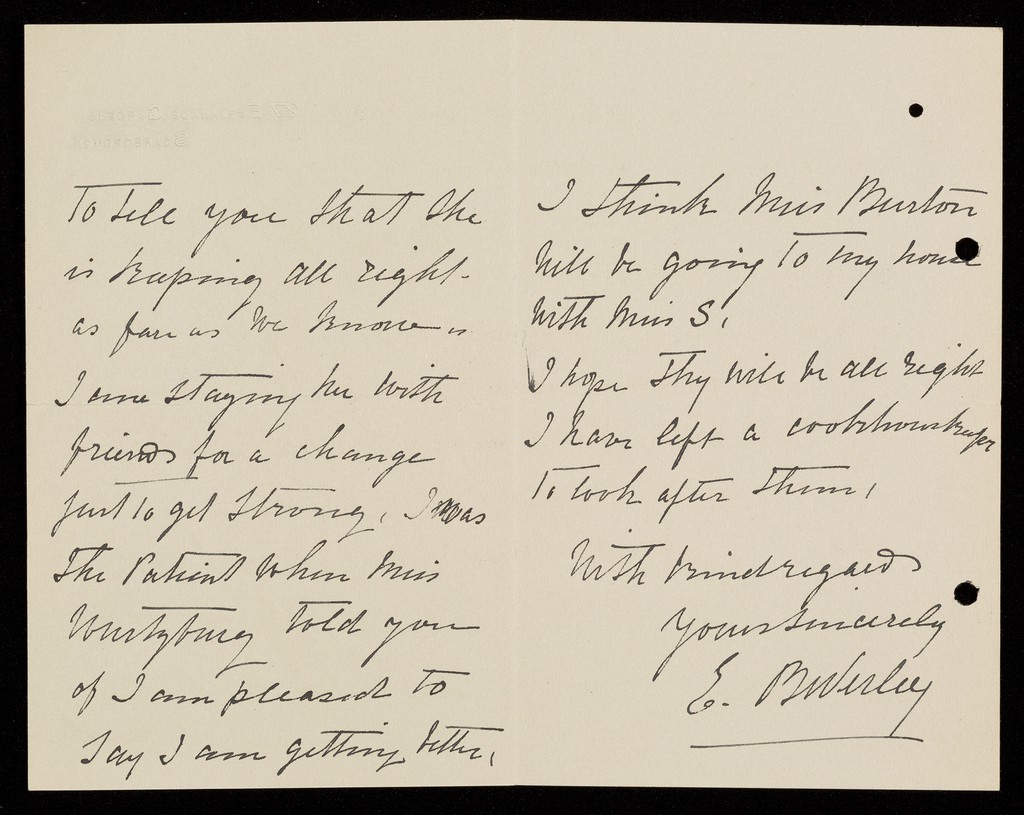 To tell you that she
is keeping all right -
as far as we know -
I am staying her with
friends for a change
just to get strong, I was
the Patient when Miss
Wurtzburg told you
of I am pleased to
say I am getting better,
I think Miss Burton
will be going to my house
with Miss S,
I hope they will be all right
I have left a cookhousekeeper
to look after them,
With kind regards
yours sincerely
E. Beverley